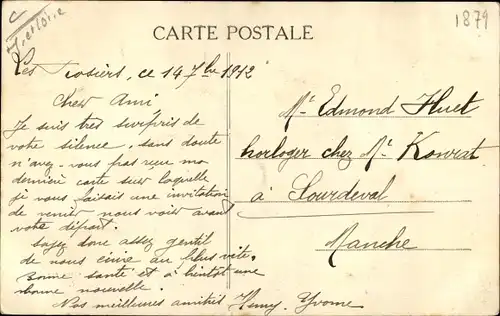 C
M. et Loire
1879
CARTE POSTALE
Les Rosiers, ce 14 7bre 1912
Cher Ami,
Je suis très surpris de
votre silence, sans doute
n'avez-vous pas reçu ma
dernière carte sur laquelle
je vous faisais une invitation
de venir nous voir avant
votre départ.
Soyez donc assez gentil
de nous écrire au plus vite.
Bonne santé et à bientôt une
bonne nouvelle.
Nos meilleures amitiés Henry, Yvonne
Mr. Edmond Huet
horloger chez Mr.
à Sourdeval
Manche